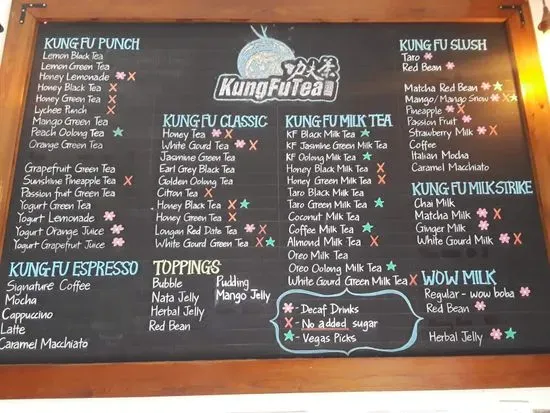 KUNG FU PUNCH
Lemon Black Tea
Lemon Green Tea
Honey Lemonade * X
Honey Black Tea X
Honey Green Tea X
Lychee Punch X
Mango Green Tea
Peach Oolong Tea ★
Orange Green Tea
Grapefruit Green Tea
Sunshine Pineapple Tea X
Passion fruit Green Tea
Yogurt Green Tea
Yogurt Lemonade *
Yogurt Orange Juice *
Yogurt Grapefruit Juice *
KUNG FU ESPRESSO
Signature Coffee
Mocha
Cappuccino
Latte
Caramel Macchiato
功夫茶
KungFuTea
KUNG FU CLASSIC
Honey Tea * X
White Gourd Tea * X
Jasmine Green Tea
Earl Grey Black Tea
Golden Oolong Tea
Citron Tea X
Honey Black Tea X ★
Honey Green Tea X
Longan Red Date Tea * X
White Gourd Green Tea X ★
TOPPINGS
Bubble
Nata Jelly
Herbal Jelly
Red Bean
Pudding
Mango Jelly
KUNG FU MILK TEA
KF Black Milk Tea ★
KF Jasmine Green Milk Tea
KF Oolong Milk Tea ★
Honey Black Milk Tea X
Honey Green Milk Tea X
Taro Black Milk Tea
Taro Green Milk Tea ★
Coconut Milk Tea
Coffee Milk Tea ★
Almond Milk Tea X
Oreo Milk Tea
Oreo Oolong Milk Tea ★
White Gourd Green Milk Tea X
* - Decaf Drinks
X - No added sugar
★ - Vegas Picks
KUNG FU SLUSH
Taro *
Red Bean *
Matcha Red Bean * ★
Mango/Mango Snow * X ★
Pineapple * X
Passion Fruit *
Strawberry Milk * X
Coffee
Italian Mocha
Caramel Macchiato
KUNG FU MILKSTRIKE
Chai Milk
Matcha Milk * X
Ginger Milk *
White Gourd Milk * X
WOW MILK
Regular - wow boba *
Red Bean *
Herbal Jelly * ★